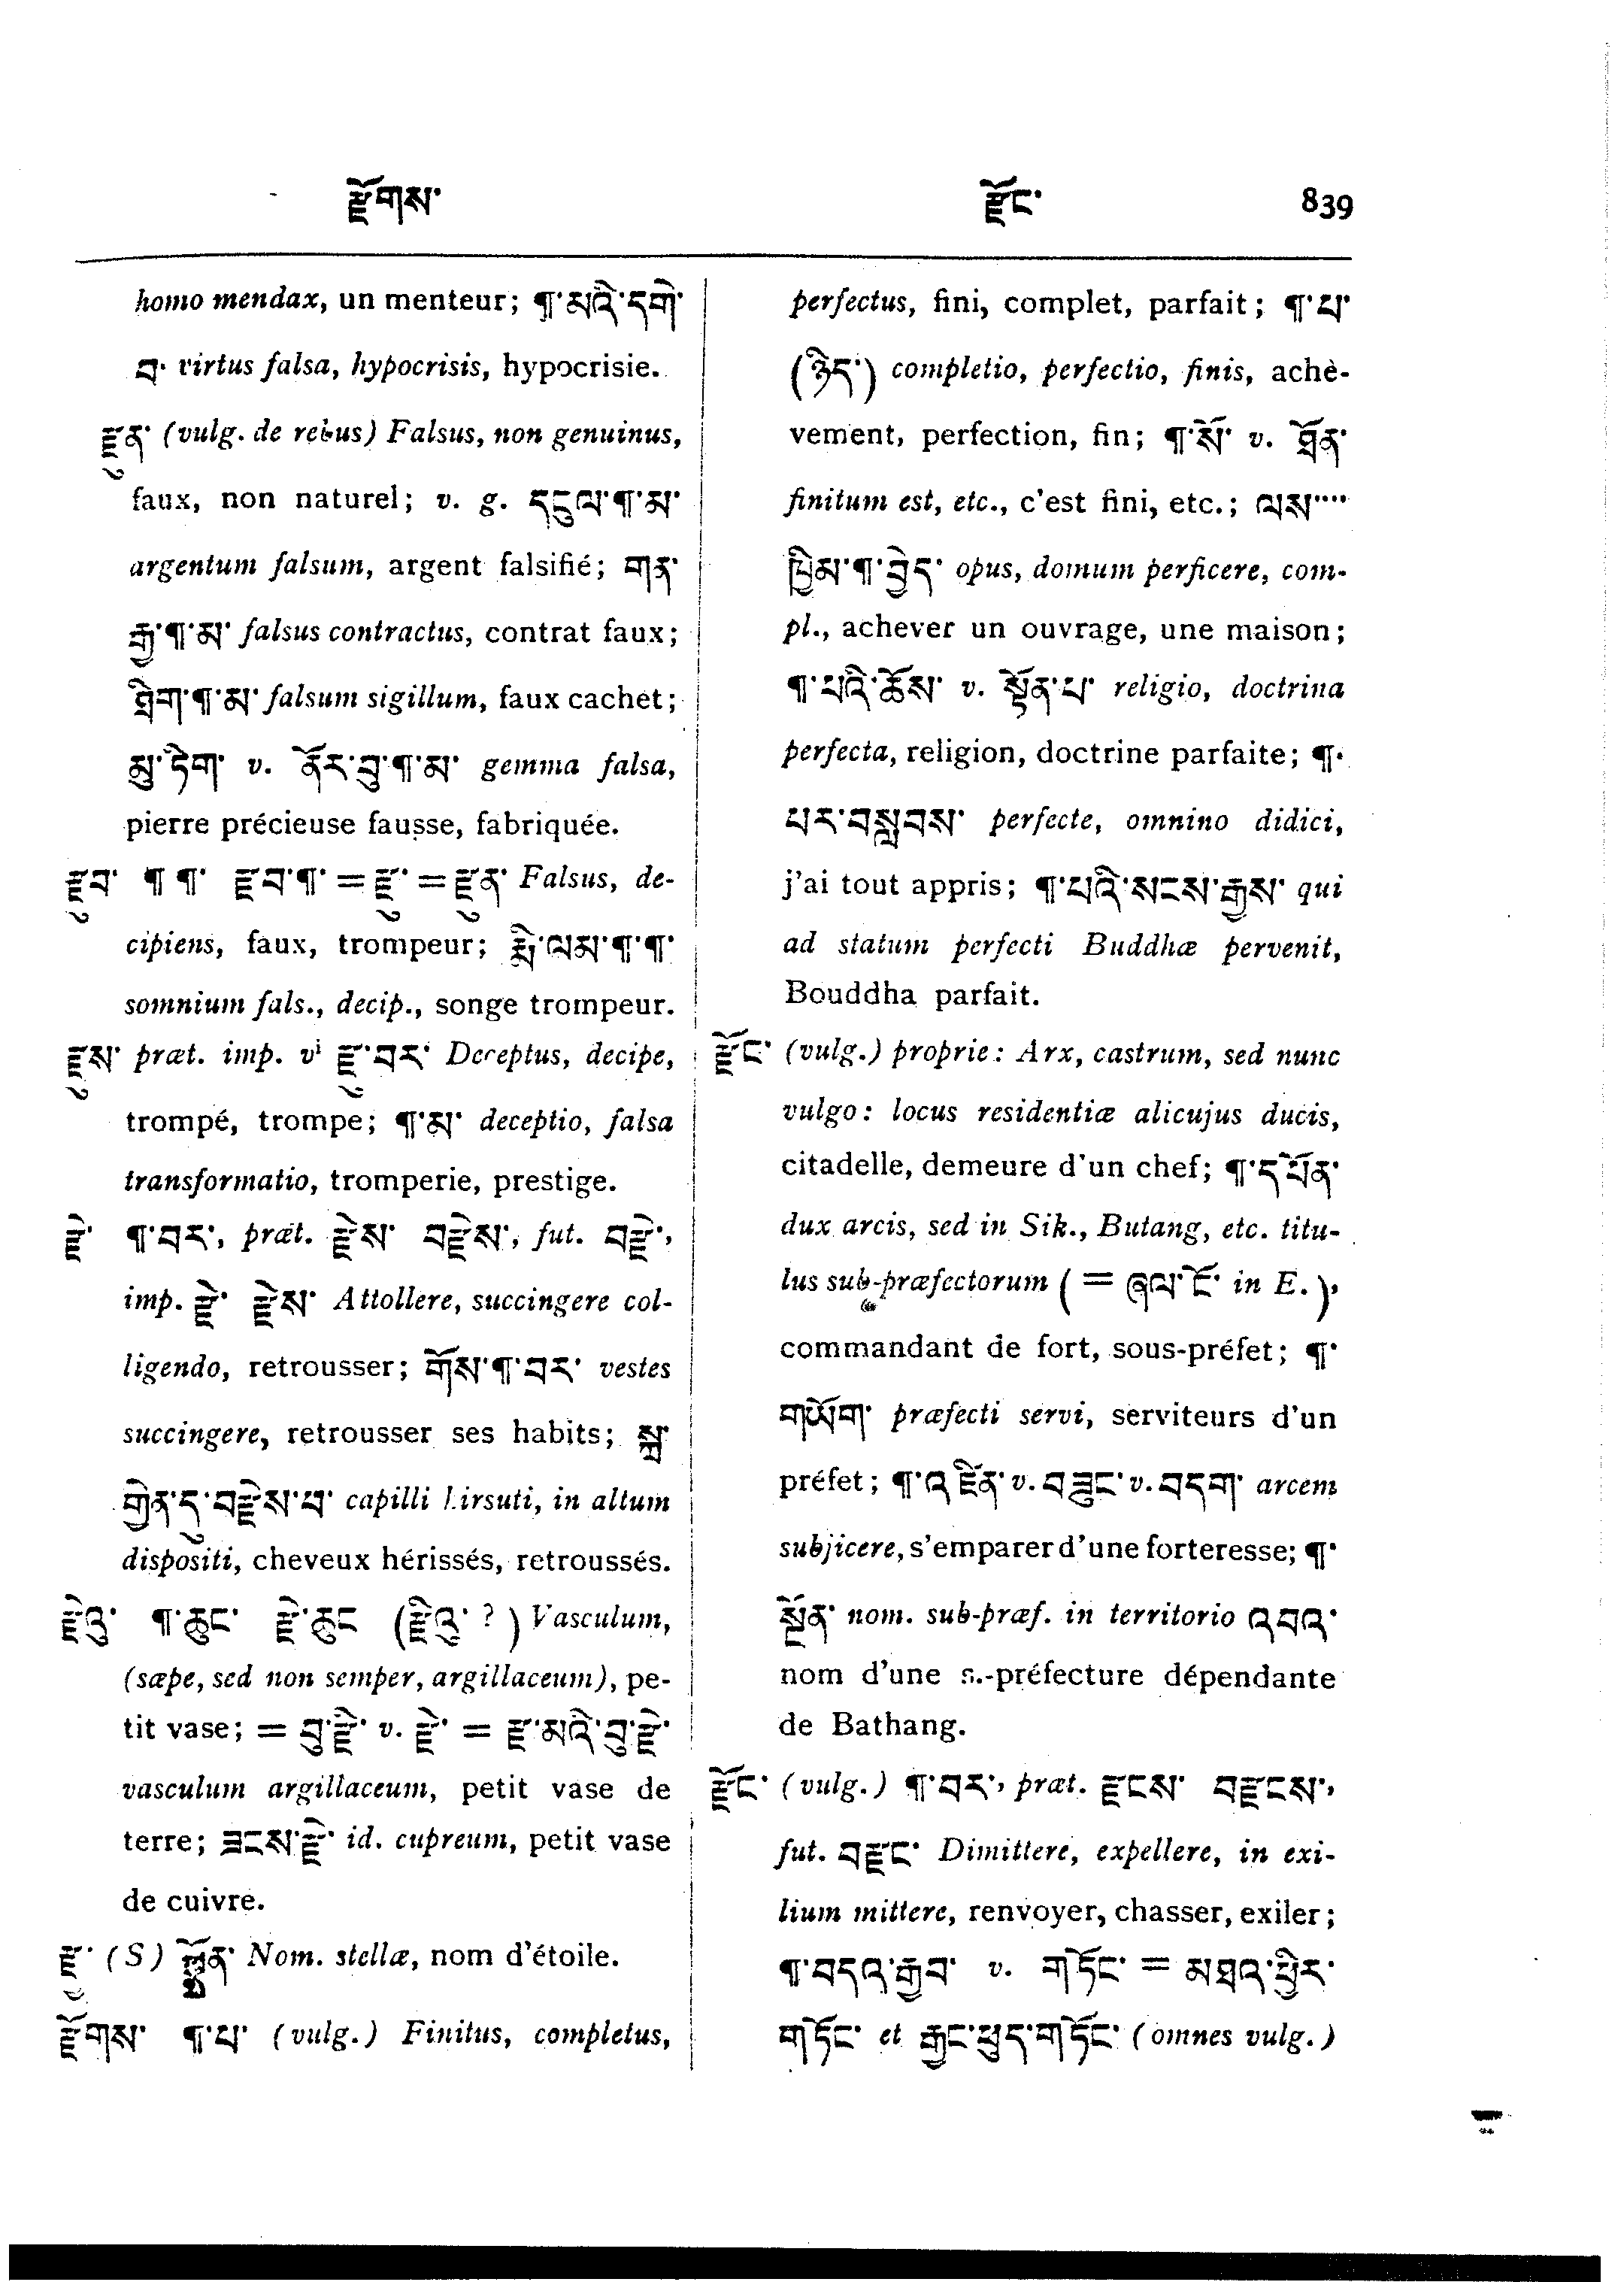 རྫོགས་ རྫོང་ 839
homo mendax, un menteur; ¶་མའི་དགེ་
བ་ virtus falsa, hypocrisis, hypocrisie.
རྫུན་ (vulg. de rebus) Falsus, non genuinus,
faux, non naturel; v. g. དངུལ་¶་མ་
argentum falsum, argent falsifié; གན་
རྒྱ་¶་མ་ falsus contractus, contrat faux;
ཐིག་¶་མ་ falsum sigillum, faux cachet;
མུ་ཏིག་ v. ནོར་བུ་¶་མ་ gemma falsa,
pierre précieuse fausse, fabriquée.
རྫུབ་ ¶ ¶་ རྫབ་¶་ = རྫུ་ = རྫུན་ Falsus, de-
cipiens, faux, trompeur; རྨི་ལམ་¶་¶་
somnium fals., decip., songe trompeur.
རྫུས་ præt. imp. vⁱ རྫུ་བར་ Deceptus, decipe,
trompé, trompe; ¶་མ་ deceptio, falsa
transformatio, tromperie, prestige.
རྫེ་ ¶་བར་, præt. རྫེས་ བརྫེས་, fut. བརྫེ་,
imp. རྫེ་ རྫེས་ Attollere, succingere col-
ligendo, retrousser; གོས་¶་བར་ vestes
succingere, retrousser ses habits; སྐྲ་
གྱེན་དུ་བརྫེས་པ་ capilli hirsuti, in altum
dispositi, cheveux hérissés, retroussés.
རྫེའུ་ ¶་ཆུང་ རྫེ་ཆུང (རྫིའུ་ ?) Vasculum,
(sæpe, sed non semper, argillaceum), pe-
tit vase; = བུ་རྫེ་ v. རྫེ་ = རྫ་མའི་བུ་རྫེ་
vasculum argillaceum, petit vase de
terre; ཟངས་རྫེ་ id. cupreum, petit vase
de cuivre.
(S) Nom. stellæ, nom d'étoile.
རྫོགས་ ¶་པ་ (vulg.) Finitus, completus,
perfectus, fini, complet, parfait; ¶་པ་
(ཉིད་) completio, perfectio, finis, achè-
vement, perfection, fin; ¶་སོ་ v. ཐོན་
finitum est, etc., c'est fini, etc.; ལས་་་་
ཁྱིམ་¶་བྱེད་ opus, domum perficere, com-
pl., achever un ouvrage, une maison;
¶་པའི་ཆོས་ v. སྟོན་པ་ religio, doctrina
perfecta, religion, doctrine parfaite; ¶་
པར་བསླབས་ perfecte, omnino didici,
j'ai tout appris; ¶་པའི་སངས་རྒྱས་ qui
ad statum perfecti Buddhæ pervenit,
Bouddha parfait.
རྫོང་ (vulg.) proprie: Arx, castrum, sed nunc
vulgo: locus residentiæ alicujus ducis,
citadelle, demeure d'un chef; ¶་དཔོན་
dux arcis, sed in Sik., Butang, etc. titu-
lus sub-præfectorum (= ཞལ་ངོ་ in E.),
commandant de fort, sous-préfet; ¶་
གཡོག་ præfecti servi, serviteurs d'un
préfet; ¶་འཛིན་ v. བཟུང་ v. བདག་ arcem
subjicere, s'emparer d'une forteresse; ¶་
སྔོན་ nom. sub-præf. in territorio འབའ་
nom d'une s.-préfecture dépendante
de Bathang.
རྫོང་ (vulg.) ¶་བར་, præt. རྫངས་ བརྫངས་,
fut. བརྫང་ Dimittere, expellere, in exi-
lium mittere, renvoyer, chasser, exiler;
¶་བདའ་རྒྱབ་ v. གཏོང་ = མཐའ་ཕྱིར་
གཏོང་ et རྒྱང་ཕུད་གཏོང་ (omnes vulg.)